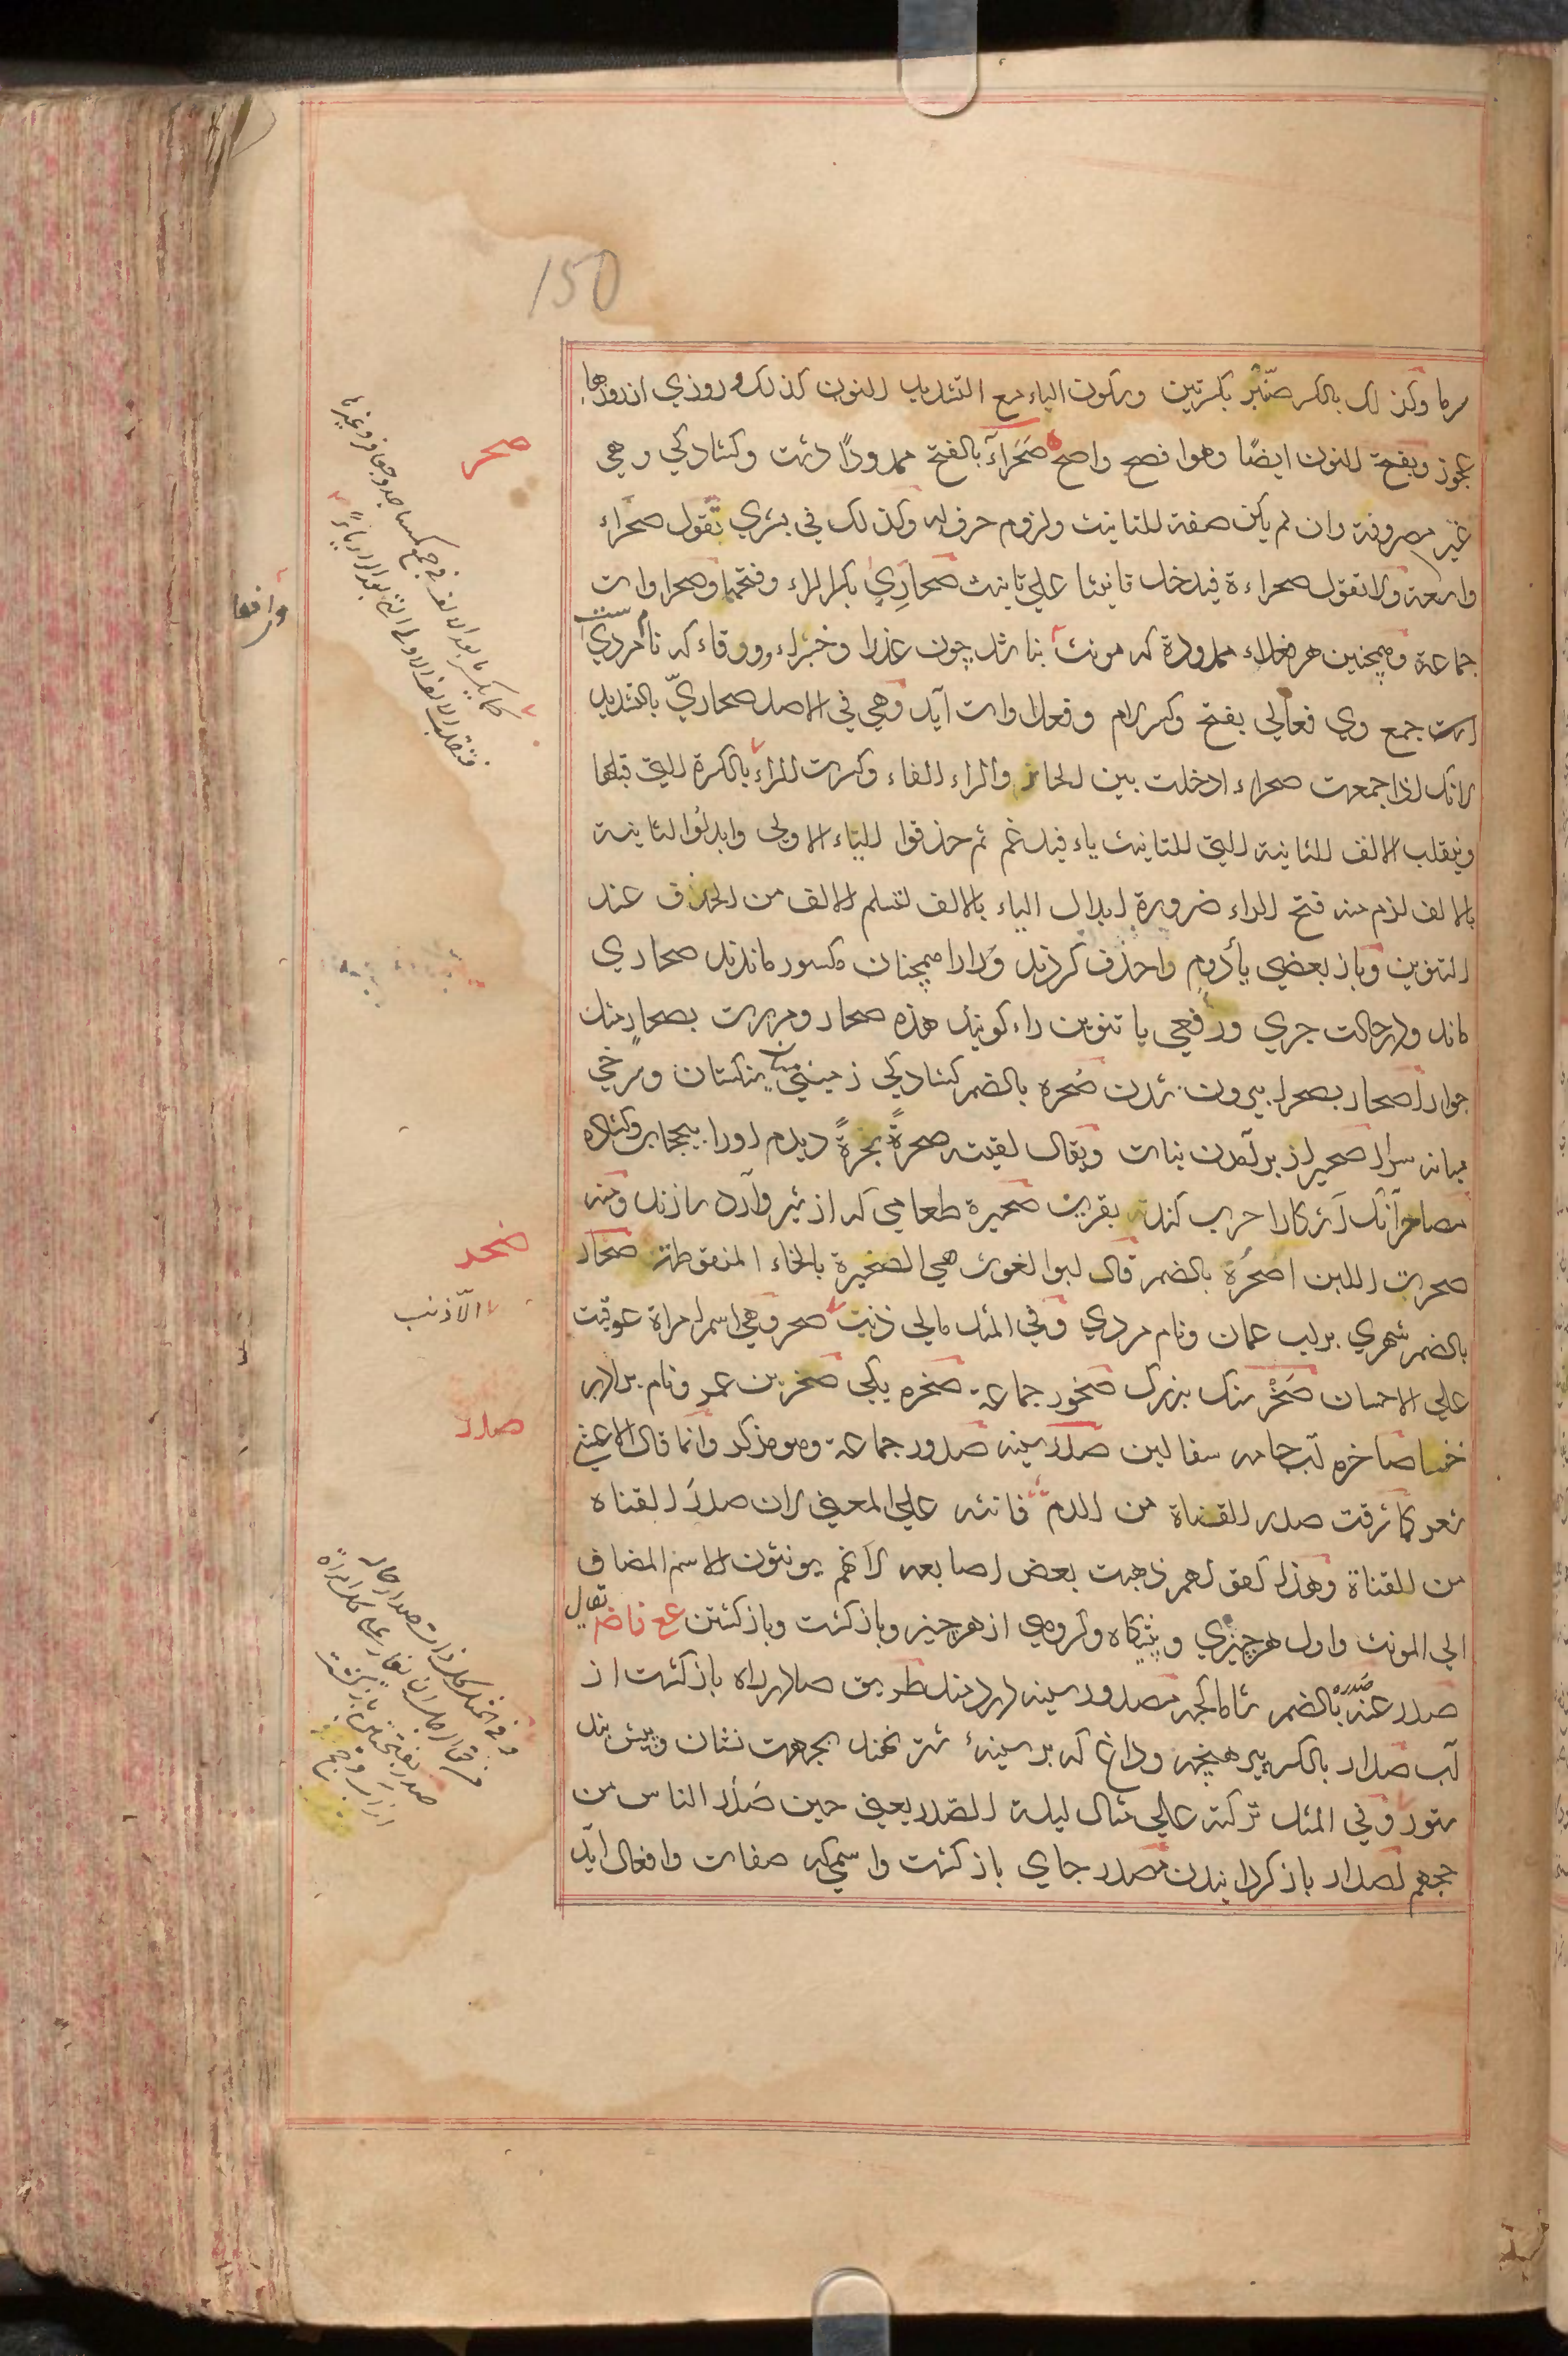 150
سرما وکذلک بالکسر صنّبر بکسرتین وسکون الیاء مع التشدید النون کذلک وروزی از روزها
عجوز وبفتحة النون ایضًا وهو افصح واصح صَحَراء بالفتح ممدودًا دشت وکشادکی وهی
غیر مصروفة وان لم یکن صفة للتانیث ولزوم حرف له وکذلک فی بشری تقول صحراء
واسعة ولا تقول صحراءة فیدخل تانیثا علی تانیث صحارِی بکسر الراء وفتحها وصحراوات
جماعة وهمچنین هر فعلاء ممدودة که مونث بناشد چون عذرا وخبراء وورقاء که نام مردی
است جمع وی فعالی بفتح وکسر لام وفعلاوات آید وهی فی الاصل صحاریّ بالتشدید
لانک اذا جمعت صحراء ادخلت بین الحاء والراء الفاء وکسرت الراء بالکسرة التی قبلها
وینقلب الالف الثانیة التی للتانیث یاء فیدغم ثم حذفوا الیاء الاولی وابدلوا الثانیة
بالالف لزم منه فتح الراء ضرورة ابدال الیاء بالالف لتسلم الالف من الحذف عند
التنوین وباز بعضی یأ دوم را حذف کردند ورا را همچنان مکسور ماندند صحاری
ماند ودر حالت جری ورفعی با تنوین راء کویند هذه صحار ومررت بصحار مثل
جوار اصحار بصحرا بیرون شدن صُحره بالضم کشادکی زمینی میان سنکستان وسرخی
میانه سواد صحیر از برآمدن نبات ویقال لقیته صحرةً بحرةً دیدم اورا بیحجابی وکشاده
مصاحر آنک آشکارا حرب کند نه بفریب صحیرة طعامی که از شیر وآرد سازند ومنه
صحرت اللبن اصحُرُة بالضم قال ابو الغوث هی الصخیرة بالخاء المنقوطة صحار
بالضم شهری برلب عمان ونام مردی وفی المثل مالی ذنب صحر وهی اسم امراة عوقبت
علی الاحسان صَخْر سنک بزرک صخور جماعة صخره یکی صخر بن عمرو نام برادر
خنسا صاخره آب جامه سفالین صدر سینه صدور جماعة وهو مذکر وانما قال الاعشی
شعر کما شرقت صدر القناة من الدم فانثه علی المعنی لان صدر القناة
من القناة وهذا کقولهم ذهبت بعض اصابعه لانهم یونثون الاسم المضاف
الی المونث واول هر چیزی وپیشکاه وکروهی از هر چیز وباز کشت وباز کشتن عع فاض یقال
صدر عنه صُدره بالضم شاماکچه مصدور سینه دردمند طریق صادر راه باز کشت از
آب صدار بالکسر پیرهنچه وداغ که بر سینهٔ شتر نهند بجهت نشان وپیش بند
ستور وفی المثل ترکته علی مثال لیلة الصدر یعنی حین صَدَر الناس من
حجهم اصدار باز کردانیدن مصدر جای باز کشت واسمی که صفات وافعال آید
صحر
وافعا
صخر
الّا ذنب
صدر